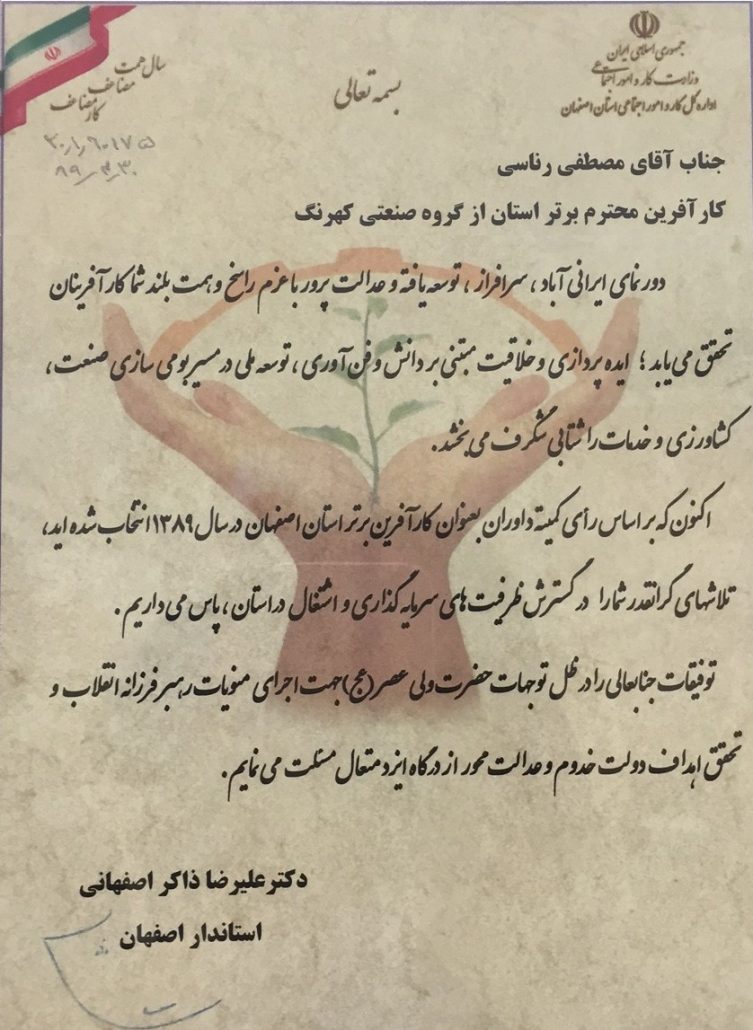 بسمه تعالی
جمهوری اسلامی ایران
وزارت کار و امور اجتماعی
اداره کل کار و امور اجتماعی استان اصفهان
سال همت
مضاعف
کار مضاعف
جناب آقای مصطفی رناسی
کارآفرین محترم برتر استان از گروه صنعتی کهرنگ
دورنمای ایرانی آباد، سرافراز، توسعه یافته و عدالت پرور با عزم راسخ و همت بلند شما کارآفرینان
تحقق می‌یابد؛ ایده پردازی و خلاقیت مبتنی بر دانش و فن آوری، توسعه ملی در مسیر بومی سازی صنعت،
کشاورزی و خدمات را شتابی شگرف می‌بخشد.
اکنون که بر اساس رأی کمیته داوران بعنوان کارآفرین برتر استان اصفهان در سال ۱۳۸۹ انتخاب شده اید،
تلاشهای گرانقدر شما را در گسترش ظرفیت های سرمایه گذاری و اشتغال در استان، پاس می داریم.
توفیقات جنابعالی را در ظل توجهات حضرت ولی عصر (عج) جهت اجرای منویات رهبر فرزانه انقلاب و
تحقق اهداف دولت خدوم و عدالت محور از درگاه ایزد متعال مسئلت می نمایم.
دکتر علیرضا ذاکر اصفهانی
استاندار اصفهان